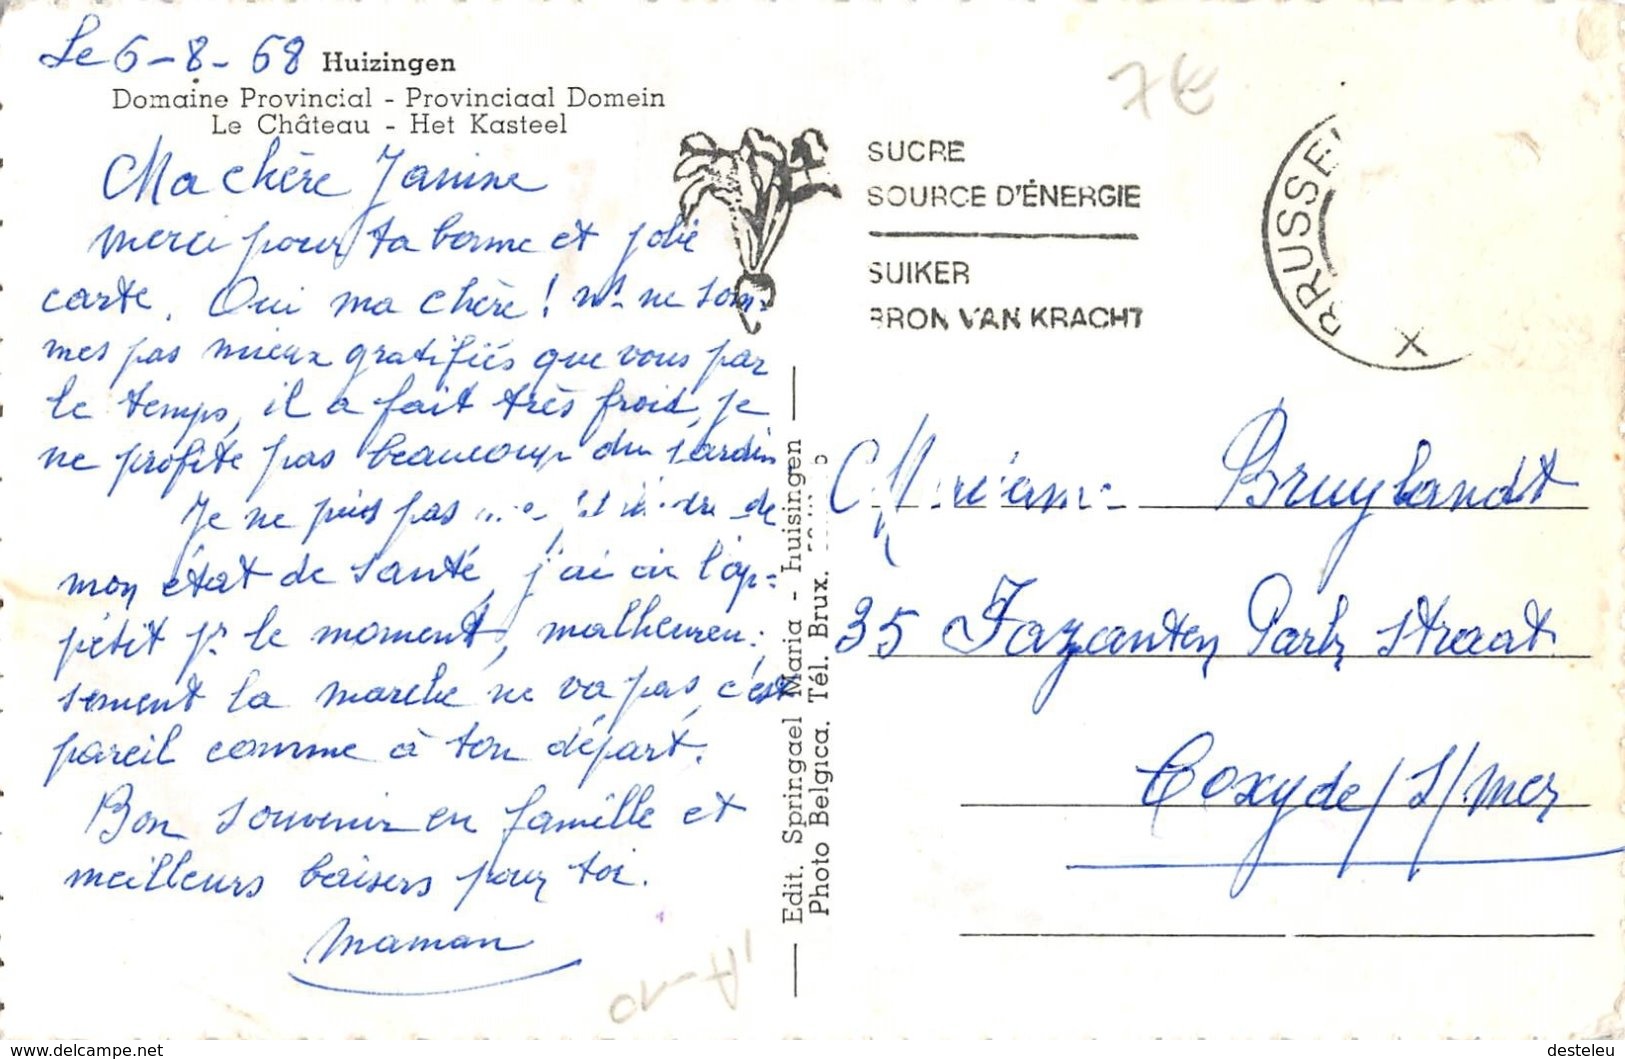 Le 6-8-68 Huizingen
Domaine Provincial - Provinciaal Domein
Le Château - Het Kasteel
Ma chère Janine
merci pour ta bonne et jolie
carte. Oui ma chère ! ns ne som-
mes pas mieux gratifiés que vous par
le temps, il a fait très froid, je
ne profite pas beaucoup du jardin
Je ne puis pas de
mon état de santé, j'ai eu l'ap=
pétit pr le moment, malheureu=
sement la marche ne va pas, c'est
pareil comme à ton départ.
Bon souvenir en famille et
meilleurs baisers pour toi.
Maman
Edit. Springael Maria - huisingen
Photo Belgica. Tél. Brux.
SUCRE
SOURCE D'ÉNERGIE
SUIKER
BRON VAN KRACHT
BRUSSE
X
7€
Bruylandt
35 Fazanten Park straat
Coxyde/S/Mer
A-10
www.delcampe.net
desteleu